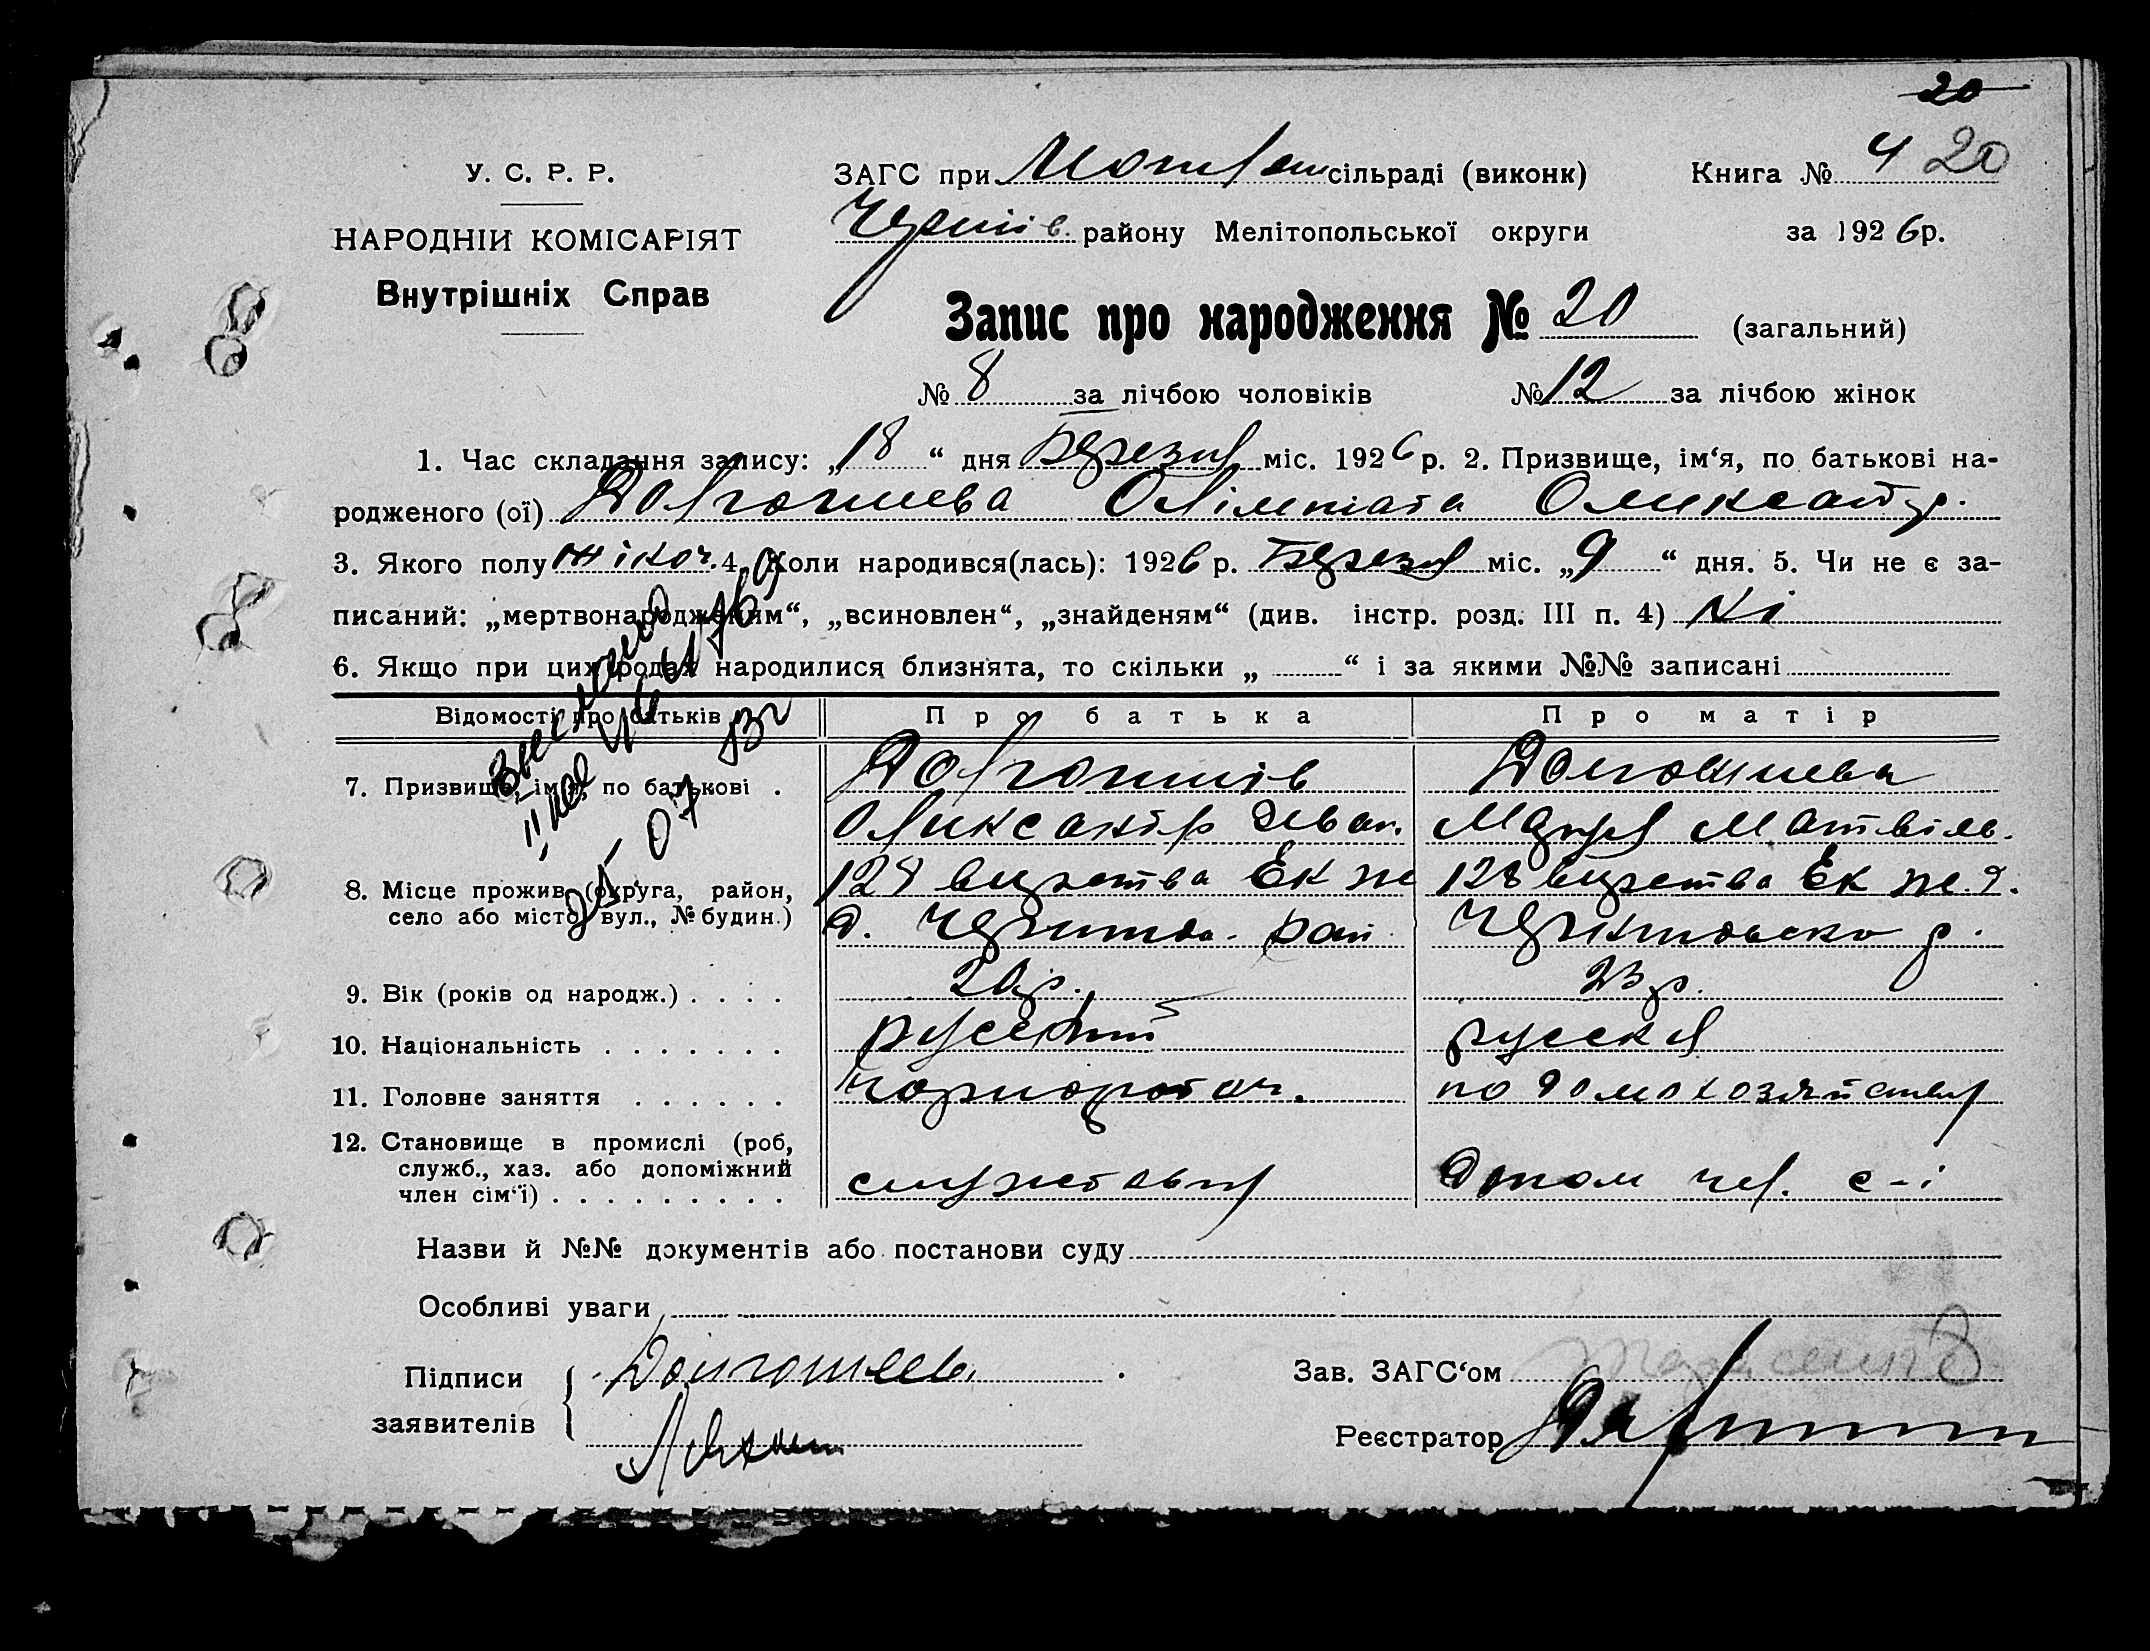 20
У. С. Р. Р.
НАРОДНІЙ КОМІСАРІЯТ
Внутрішніх Справ
ЗАГС при сільраді (виконк)
Книга № 4 20
району Мелітопольської округи
за 1926 р.
Запис про народження № 20 (загальний)
№ 8 за лічбою чоловіків № 12 за лічбою жінок
1. Час складання запису: „18“ дня Березня міс. 1926 р. 2. Призвище, ім‘я, по батькові на-
родженого (ої) Долгошиева Олімпіада Олександр.
3. Якого полу жіноч. 4. Коли народився(лась): 1926 р. Березня міс. „9“ дня. 5. Чи не є за-
писаний: „мертвонародженим“, „всиновлен“, „знайденям“ (див. інстр. розд. III п. 4) Ні
6. Якщо при цих родах народилися близнята, то скільки „ “ і за якими №№ записані
Відомості про батьків Про батька Про матір
7. Призвище, ім‘я, по батькові . Долгошиів Долгошиева
Олександр Иван. Мария Матвіїв.
8. Місце прожив. (округа, район, 128 верства Ек ж 128 верства Ек ж. д.
село або місто, вул., № будин.) д. рай. р.
9. Вік (років од народж.) . . . . 23 р.
10. Національність . . . . . . . русский русская
11. Головне заняття . . . . . . чорнороб по домохозяйству
12. Становище в промислі (роб,
служб., хаз. або допоміжний
член сім‘ї) . . . . . . . . . допом чл. с-і
Назви й №№ документів або постанови суду
Особливі уваги
Підписи Долгошеев
заявителів
Зав. ЗАГС‘ом
Реєстратор